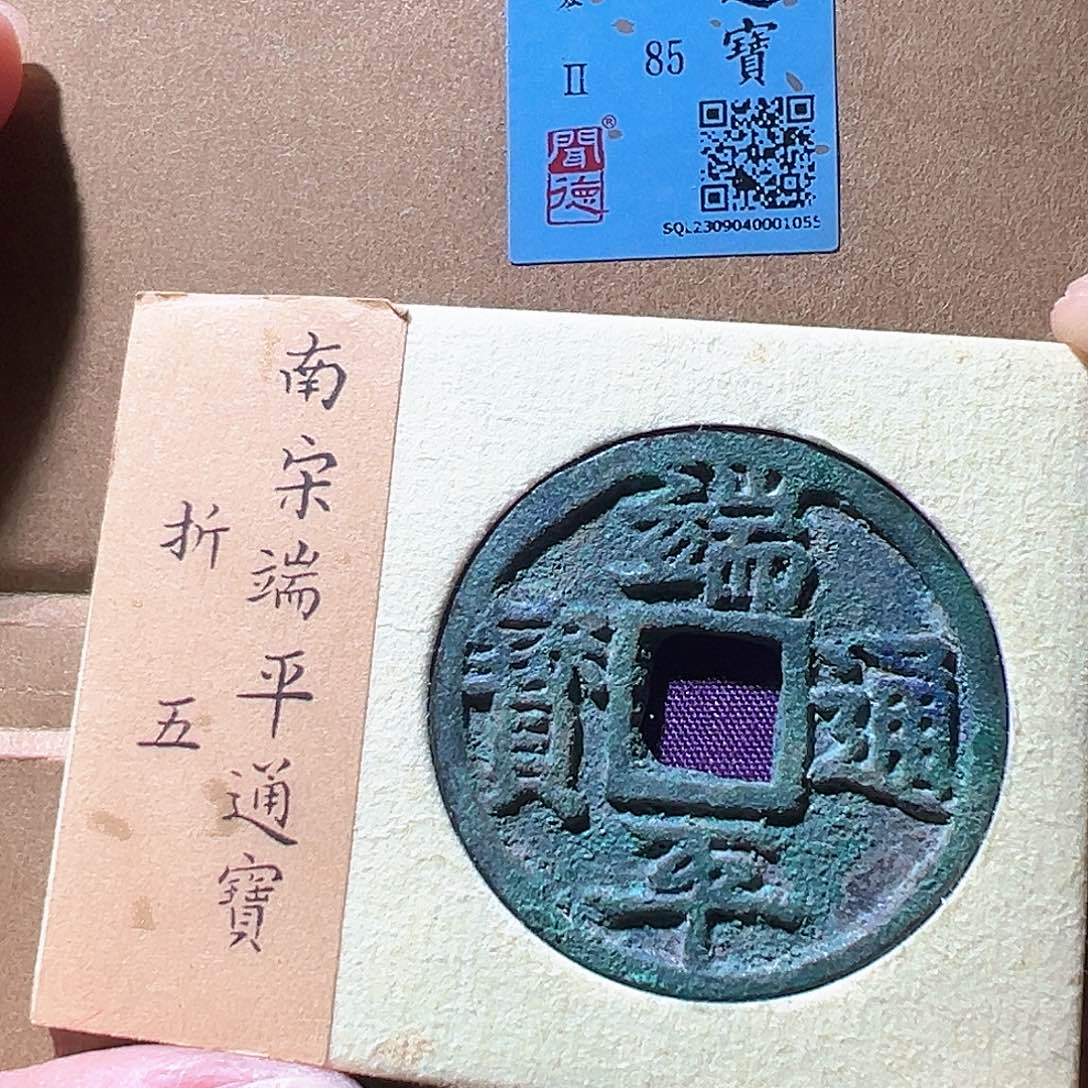 寶
85
II
聞德®
SQL2309040001055
南宋端平通寶
折五
端平通寶